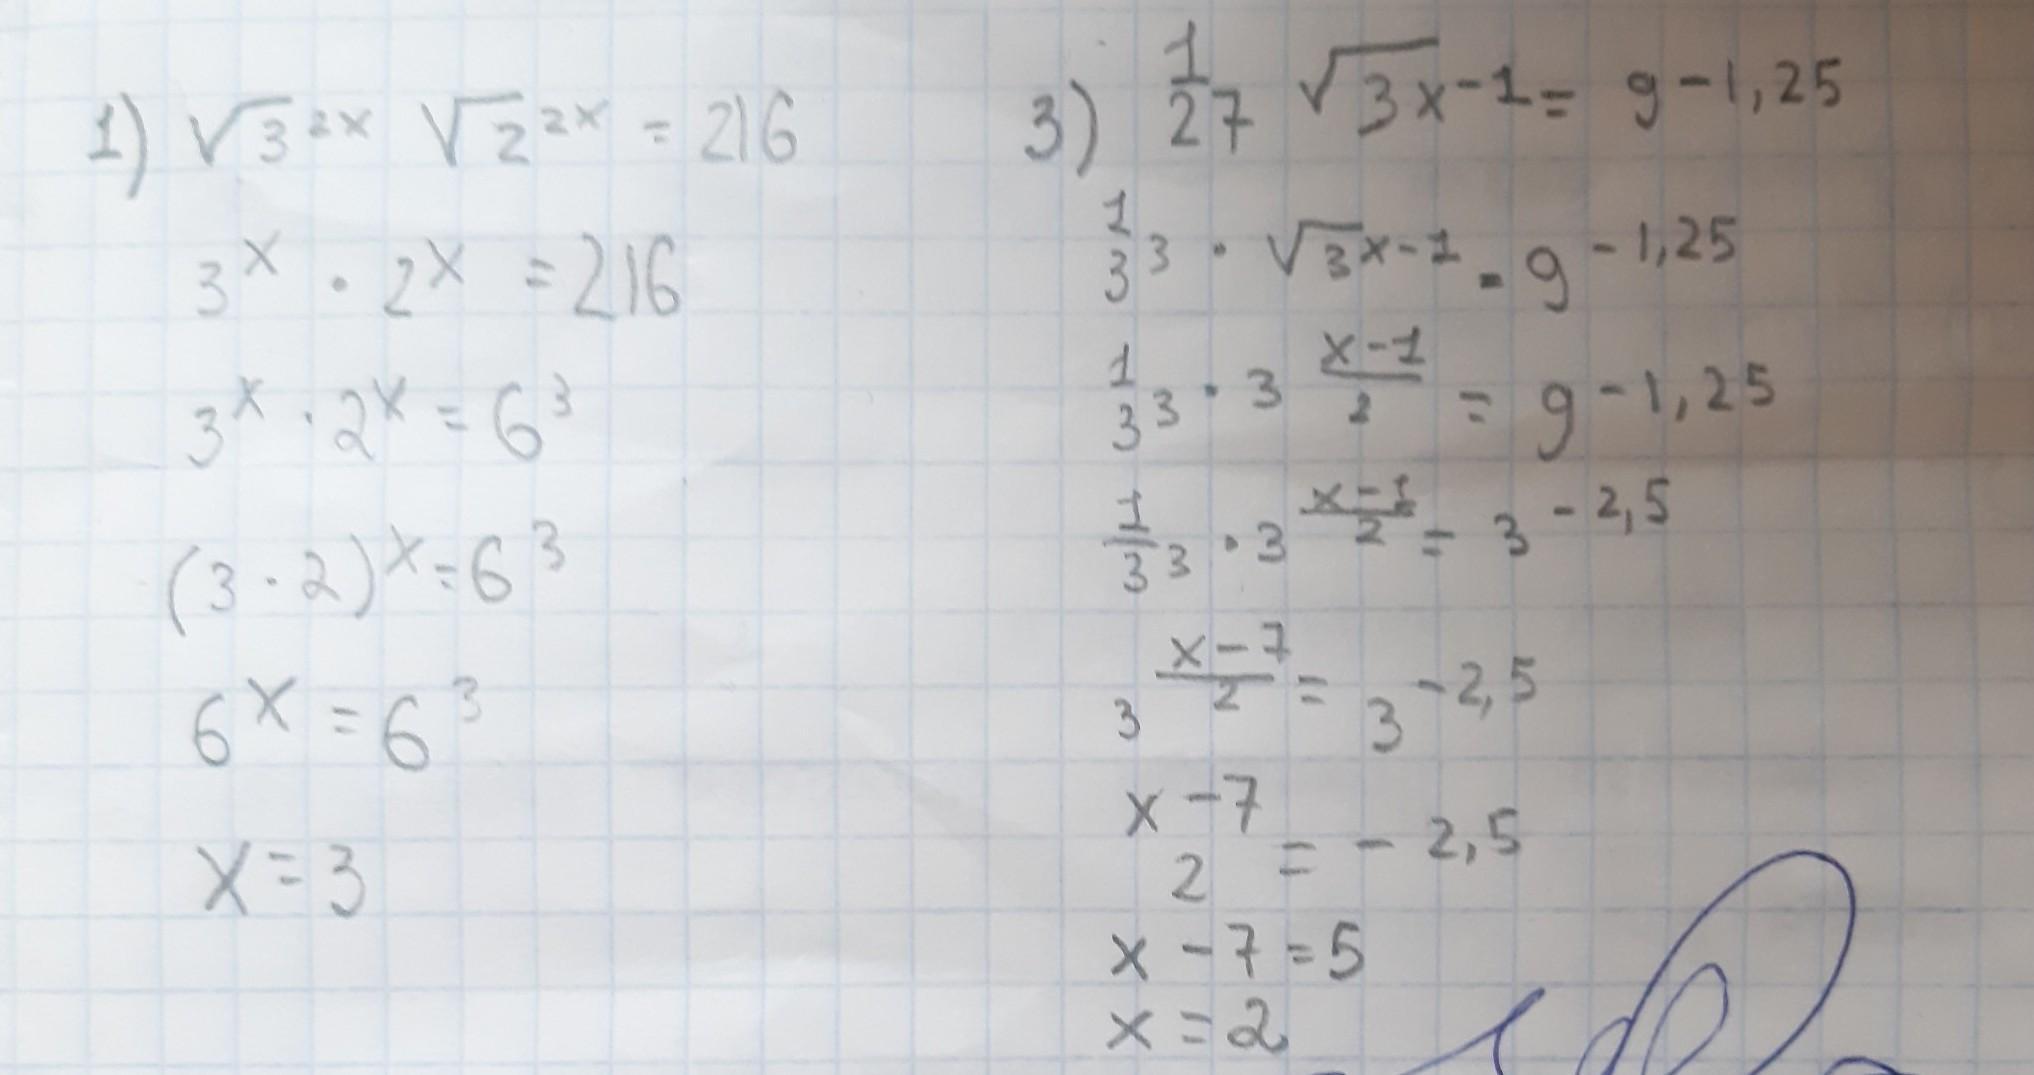 1) √3^2x √2^2x = 216
3^x · 2^x = 216
3^x · 2^x = 6^3
(3 · 2)^x = 6^3
6^x = 6^3
x = 3
3) 1/27 √3^x-1 = 9^-1,25
1/3^3 · √3^x-1 = 9^-1,25
1/3^3 · 3^(x-1)/2 = 9^-1,25
1/3^3 · 3^(x-1)/2 = 3^-2,5
3^(x-7)/2 = 3^-2,5
(x-7)/2 = -2,5
x - 7 = 5
x = 2